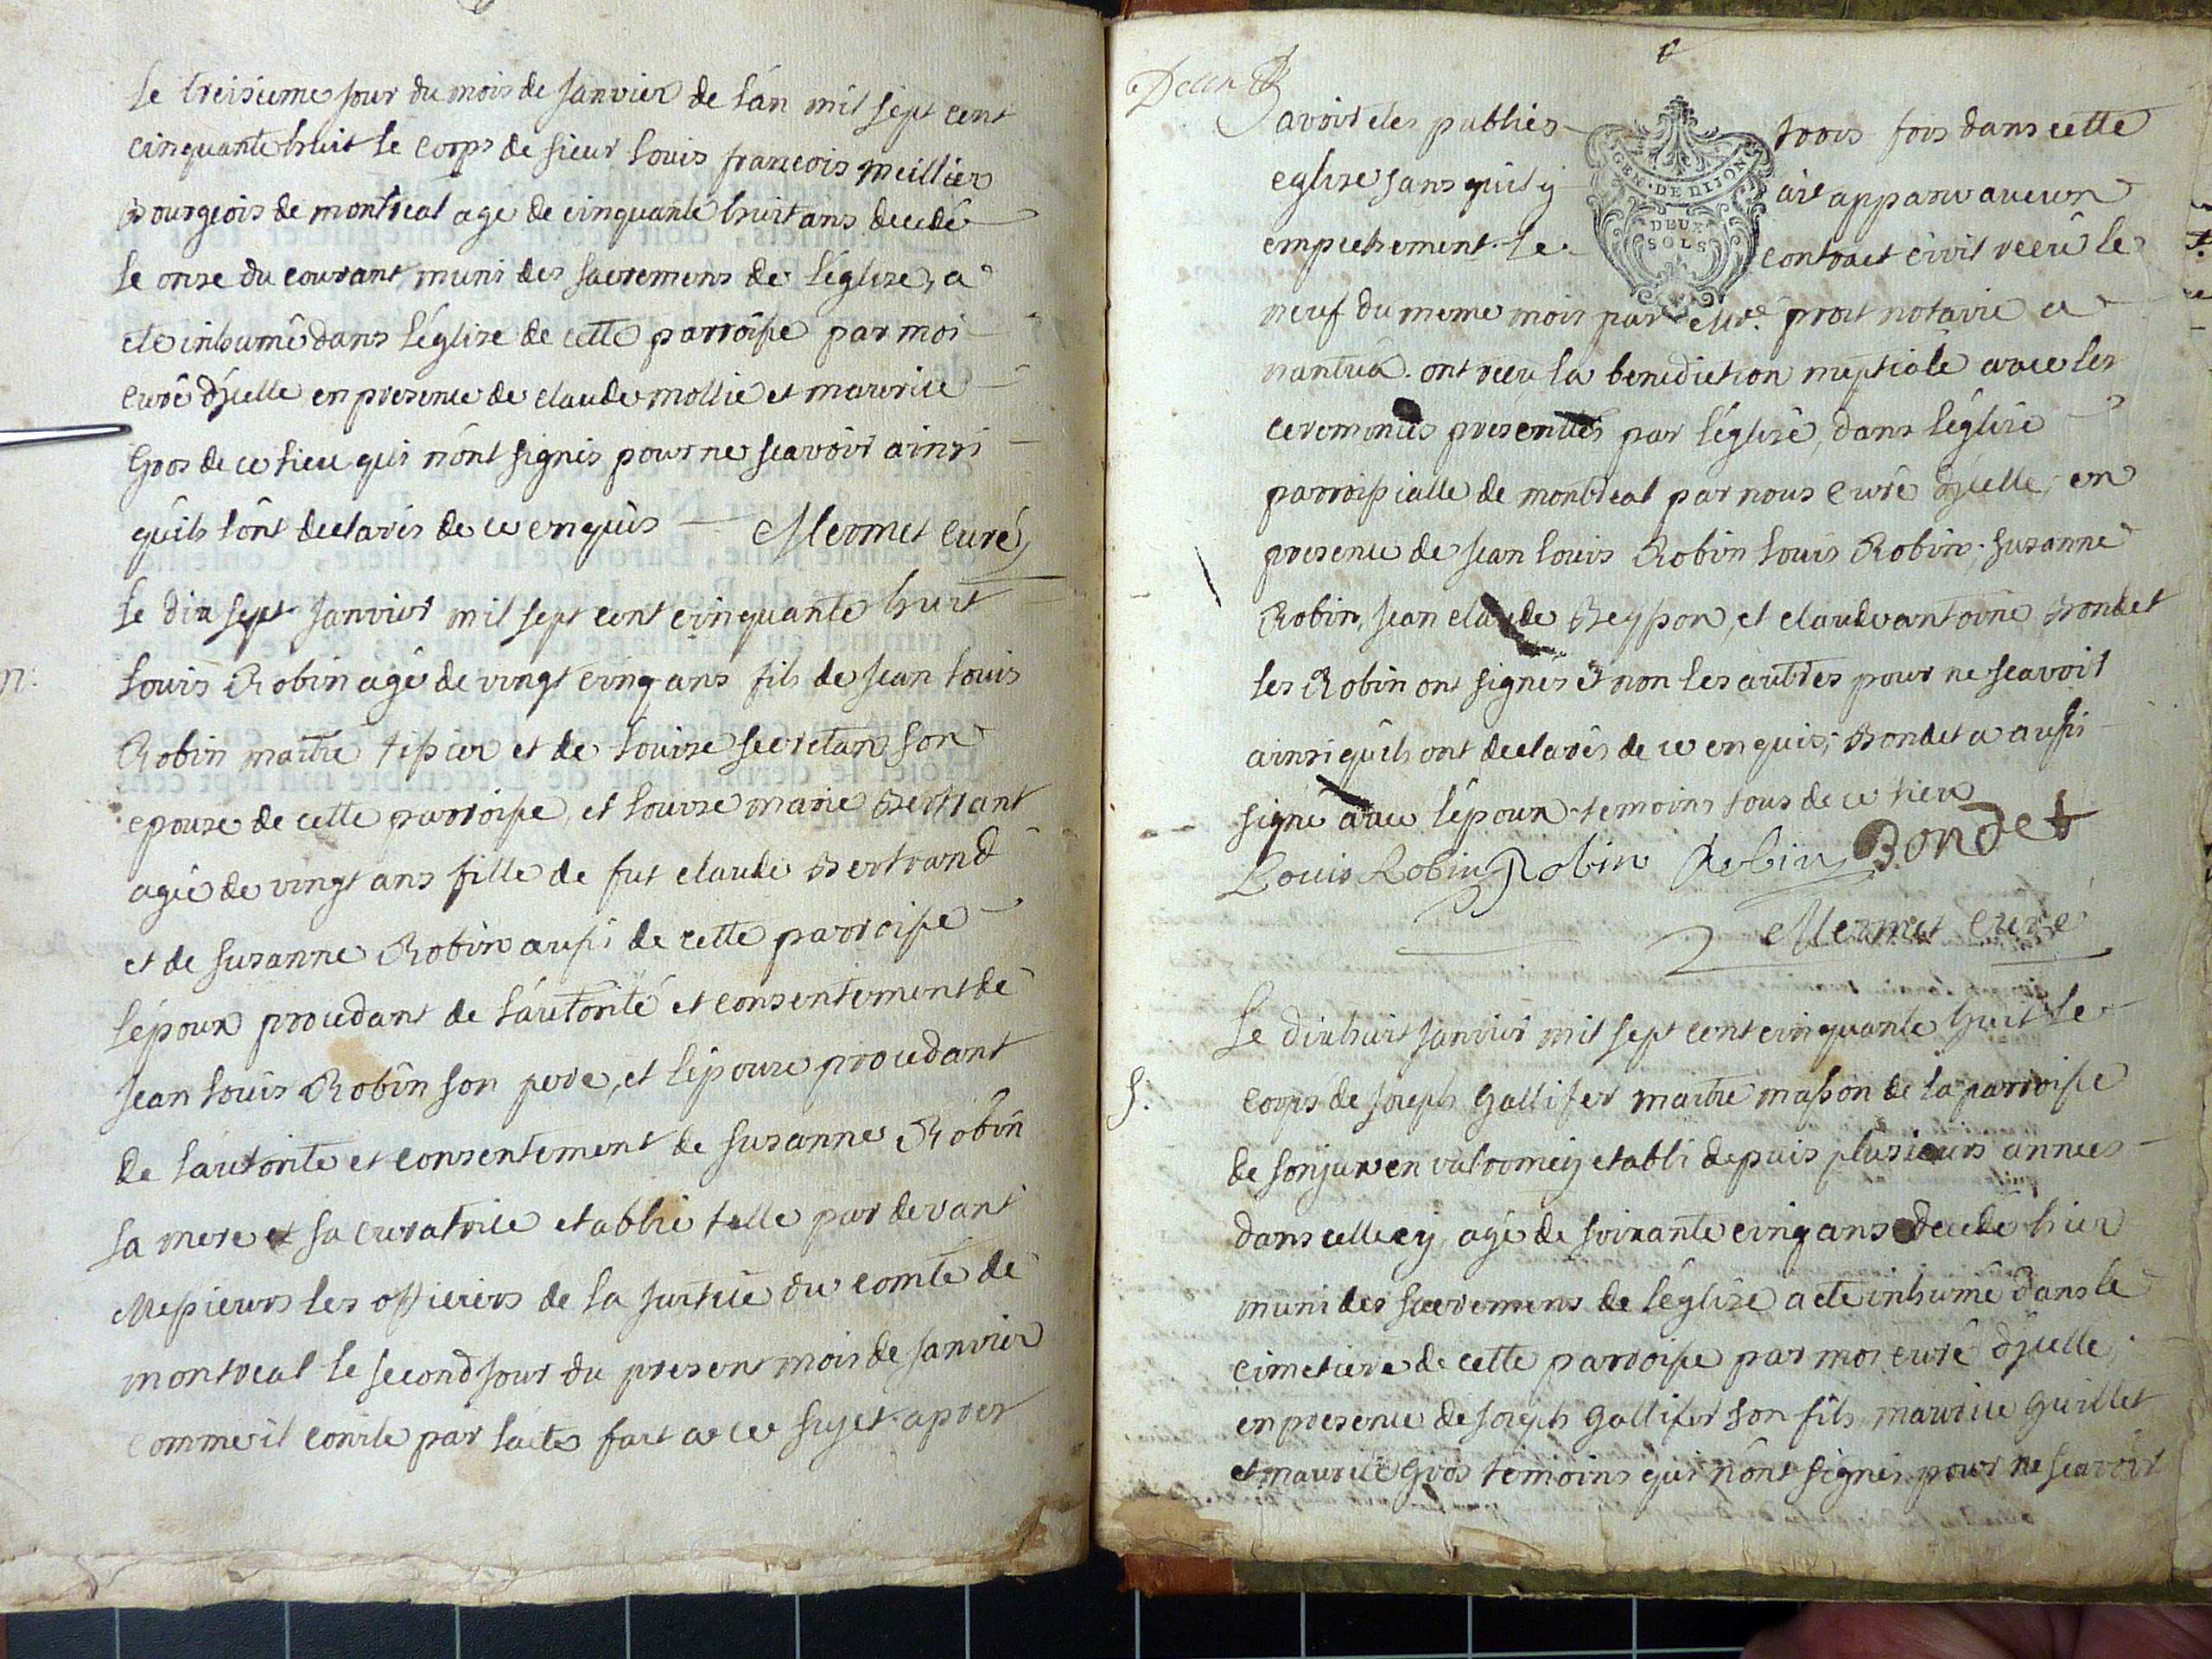 Le treisieme jour du mois de janvier de lán mil sept cent
cinquante huit le corps de sieur Louis francois meillier
Bourgeois de montreal age de cinquante huit ans decedé
le onse du courant muni des sacremens de léglise, a
ete inhumé dans léglise de cette parroisse par moi
curé dj'celle en presence de claude mollie et maurice
Gros de ce lieu qui n'ont signés pour ne scavoir ainsi
qu'ils l'ont declarés de ce enquis Mermet curé
Le dix sept janvier mil sept cent cinquante huit
n.
Louis Robin agé de vingt cinq ans fils de jean Louis
Robin maitre tisseur et de Louise secretan son
epouse de cette parroisse, et Louise marie Bertrant
agée de vingt ans fille de fut claude Bertrand
et de susanne Robin aussi de cette parroisse
lépoux procedant de láutorité et consentement de
jean Louis Robin son pere, et lépouse procedant
de láutorite et consentement de susanne Robin
sa mere et sa curatrice etablie telle par devant
Messieurs les officiers de la justice du comté de
montreal le second jour du present mois de janvier
comme il conste par lacte fait a ce sujet apres
avoir etes publiés trois fois dans cette
eglise sans qu'il y ait apparu aucun
empechement. Le contract civil recu le
GEN. DE DIJON
DEUX
SOLS
neuf du meme mois par Me. prost notaire a
nantua. ont recu la benediction nuptiale avec les
ceremonies presentées par léglise, dans léglise
parroissialle de montreal par nous curé dj'celle, en
presence de jean Louis Robin Louis Robin, susanne
Robin, jean claude Reysson, et claude antoine Bondet
les Robin ont signés et non les autres pour ne scavoir
ainsi qu'ils ont declarés de ce enquis; Bondet a aussi
signé avec lépoux temoins tous de ce lieu
Louis Robin Robin Robin Bondet
Mermet curé
Le dixhuit janvier mil sept cent cinquante huit le
S.
corps de joseph Gallifer maitre masson de la parroisse
de sonjuxen valromey etabli depuis plusieurs annees
dans celle cy, agé de soixante cinq ans decede hier
muni des sacremens de léglise a ete inhumé dans le
cimetiere de cette parroisse par moi curé dj'celle
en presence de joseph Gallifer son fils, maurice Guillet
et maurice Gros temoins qui n'ont signés pour ne scavoir